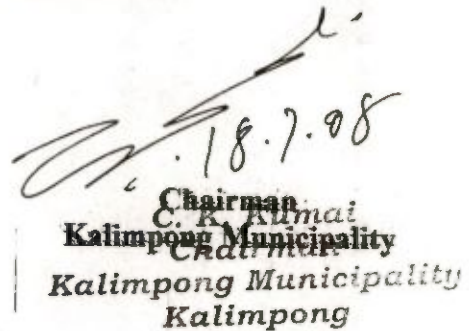 18.7.08
Chairman
C. K. Kumai
Kalimpong Municipality
Chairman
Kalimpong Municipality
Kalimpong